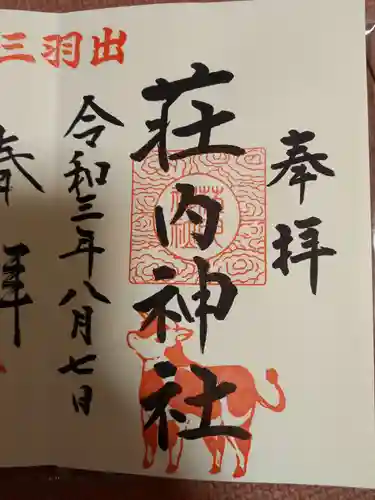 奉拝
荘内神社
令和三年八月七日
三羽出
奉拝